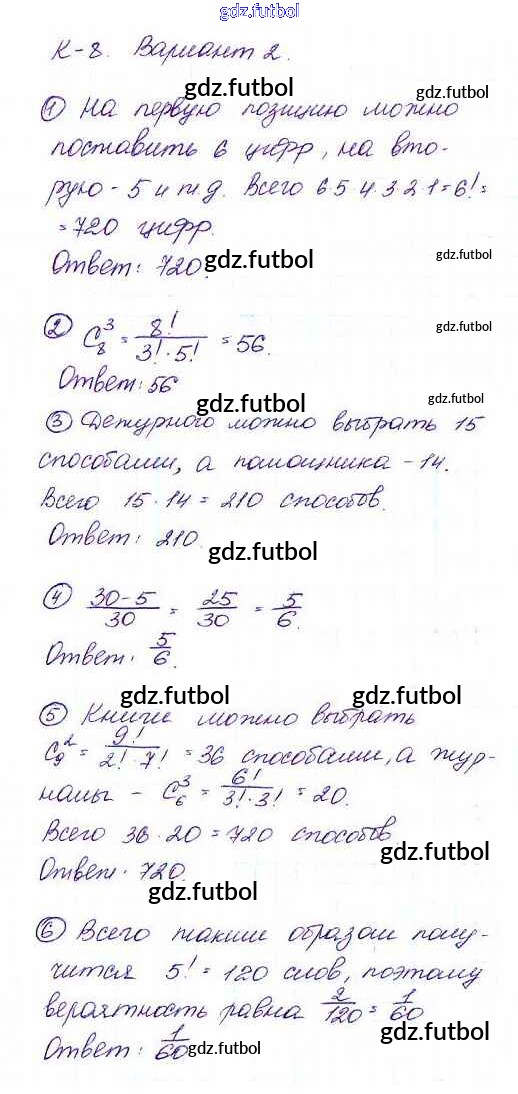 gdz.futbol
К-8. Вариант 2.
gdz.futbol gdz.futbol
① На первую позицию можно
поставить 6 цифр, на вто-
рую - 5 и т.д. Всего 6·5·4·3·2·1=6!=
=720 цифр.
Ответ: 720. gdz.futbol gdz.futbol
② C₈³ = 8!/(3!·5!) = 56. gdz.futbol
Ответ: 56
gdz.futbol gdz.futbol
③ Дежурного можно выбрать 15
способами, а помощника - 14.
Всего 15·14 = 210 способов.
Ответ: 210.
gdz.futbol
④ (30-5)/30 = 25/30 = 5/6.
Ответ: 5/6.
gdz.futbol gdz.futbol
⑤ Книги можно выбрать
C₉² = 9!/(2!·7!) = 36 способами, а жур-
налы - C₆³ = 6!/(3!·3!) = 20.
Всего 36·20 = 720 способов
gdz.futbol
Ответ: 720.
gdz.futbol
⑥ Всего таким образом полу-
чится 5! = 120 слов, поэтому
вероятность равна 2/120 = 1/60
gdz.futbol
Ответ: 1/60 gdz.futbol